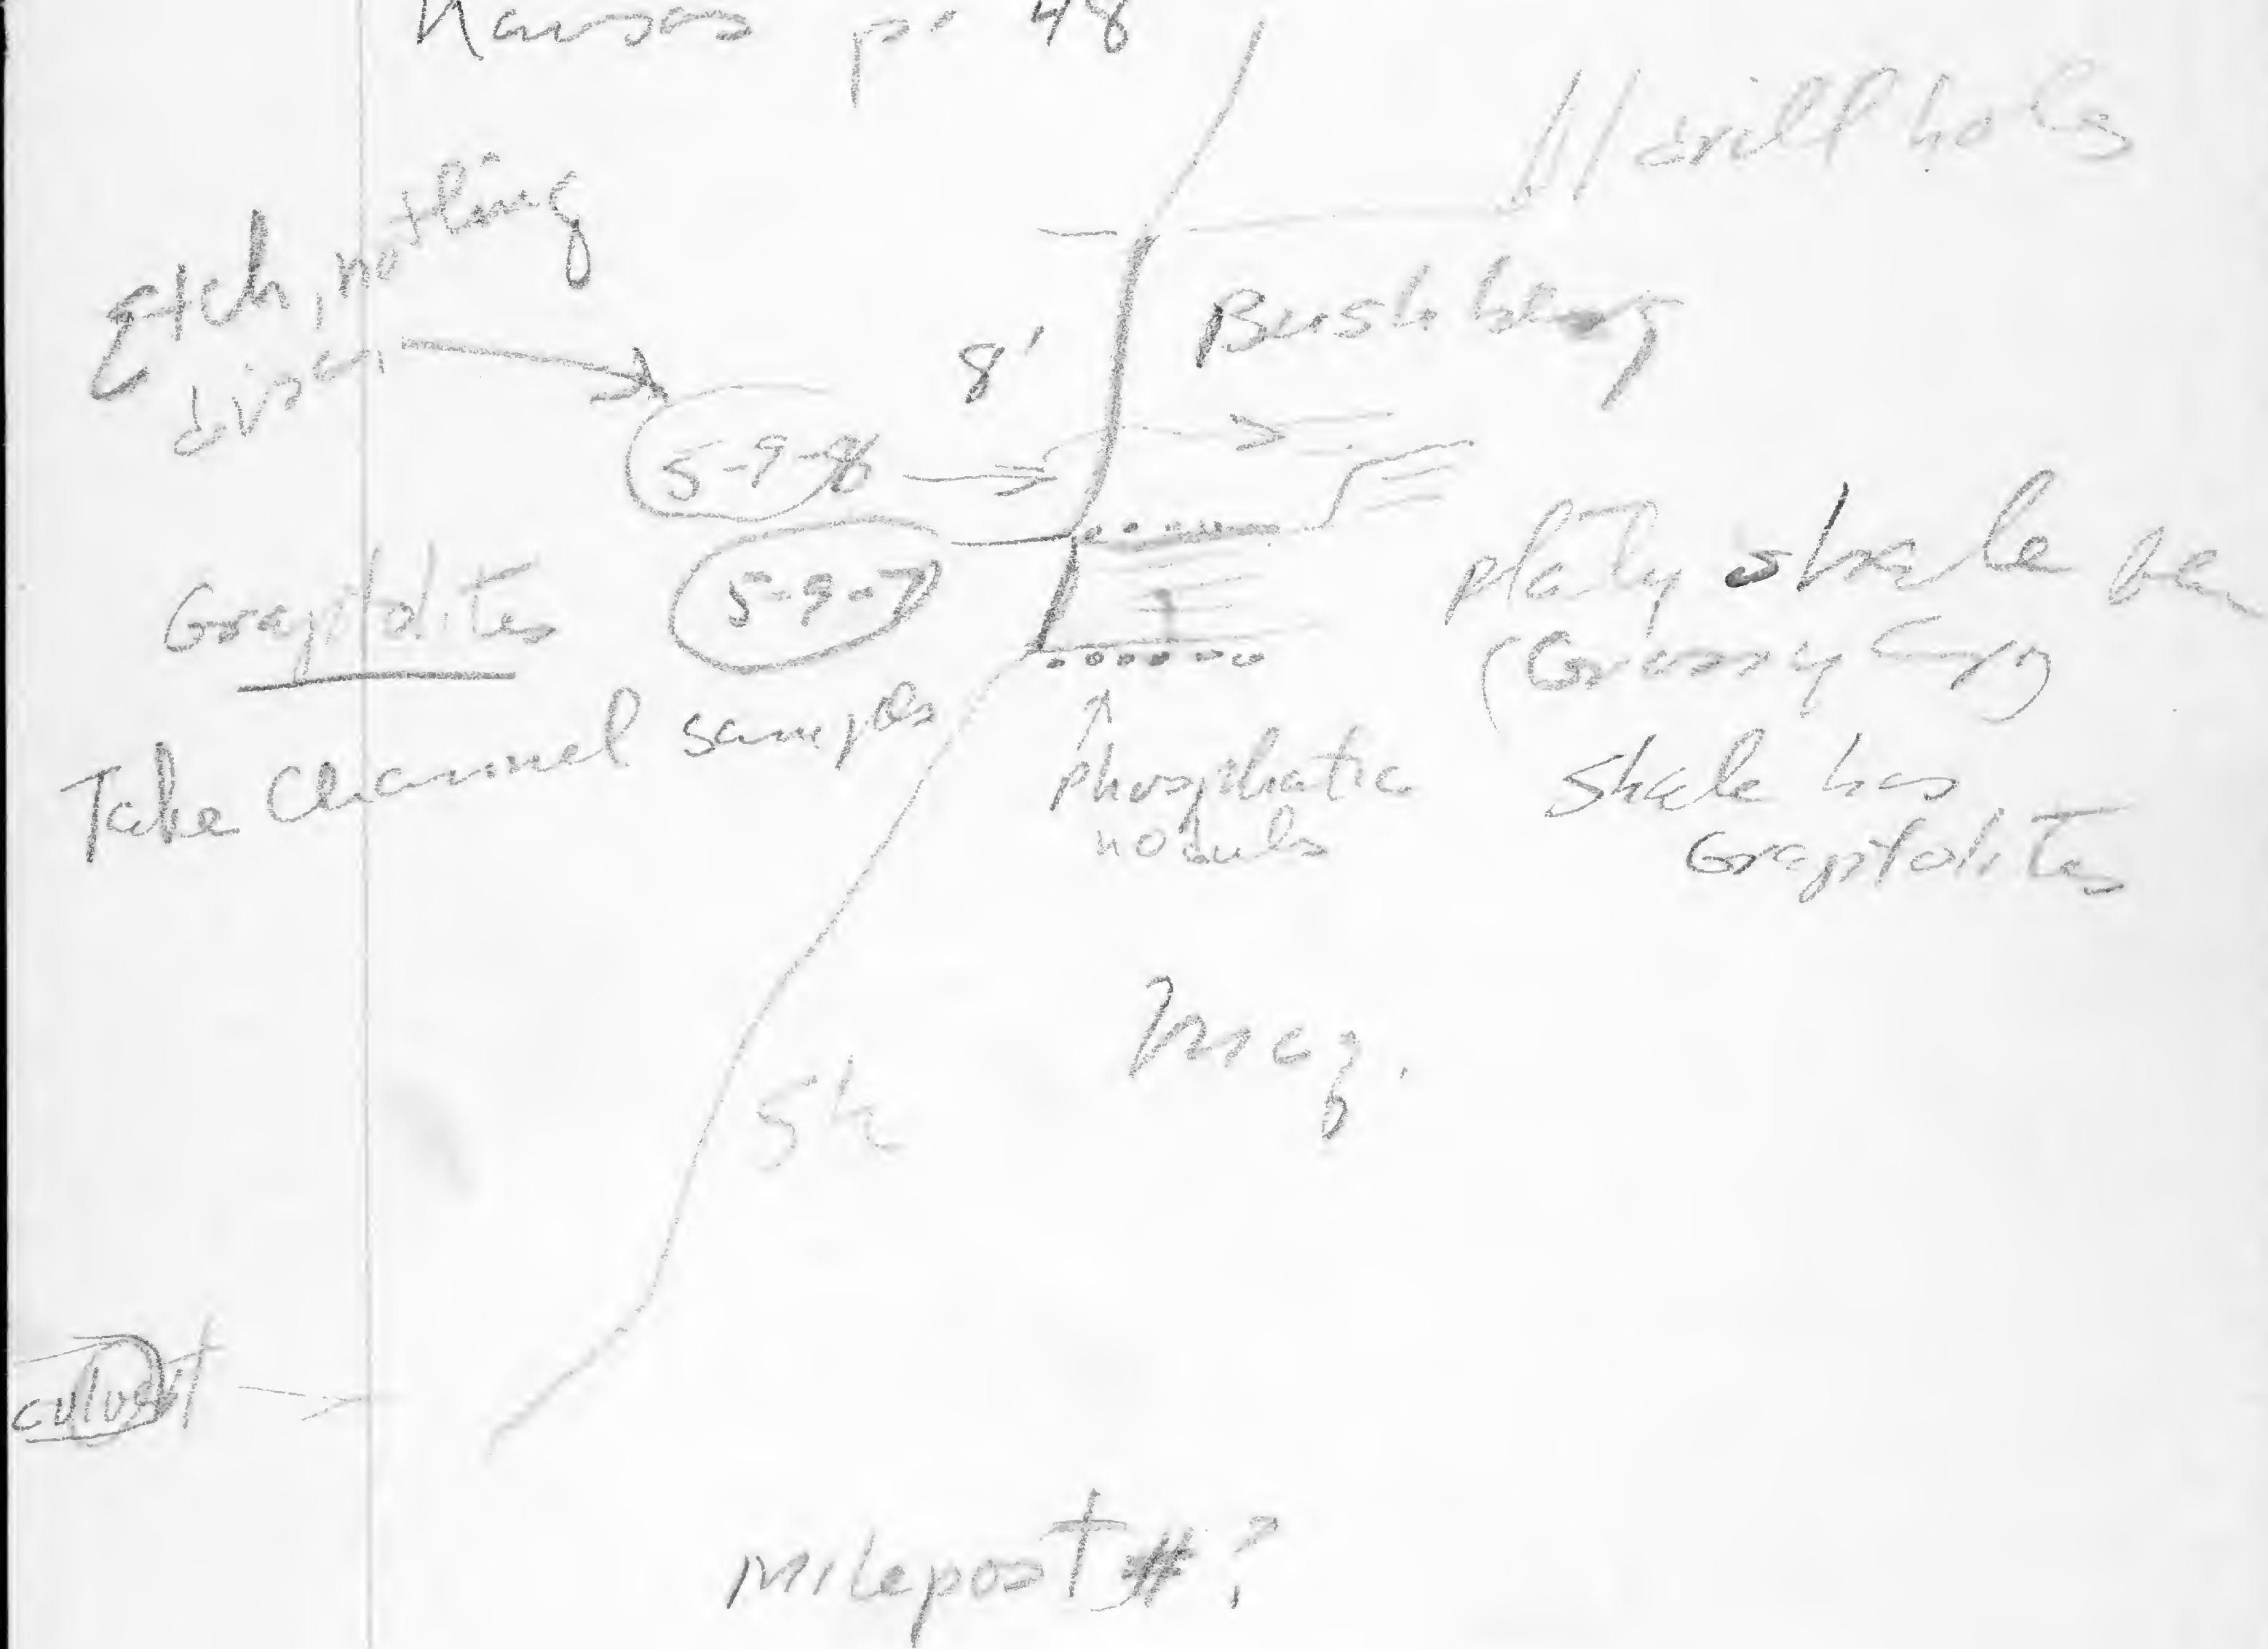 Kansas p. 48
drill hole
Etch, nothing
8'
Bushberg
5-9-8
Graptolites
5-9-7
platy shale
(Grassy Crk)
Take Channel samples
phosphatic
noduls
Shale has
Graptolites
Maq.
Sh
culvert
milepost #?